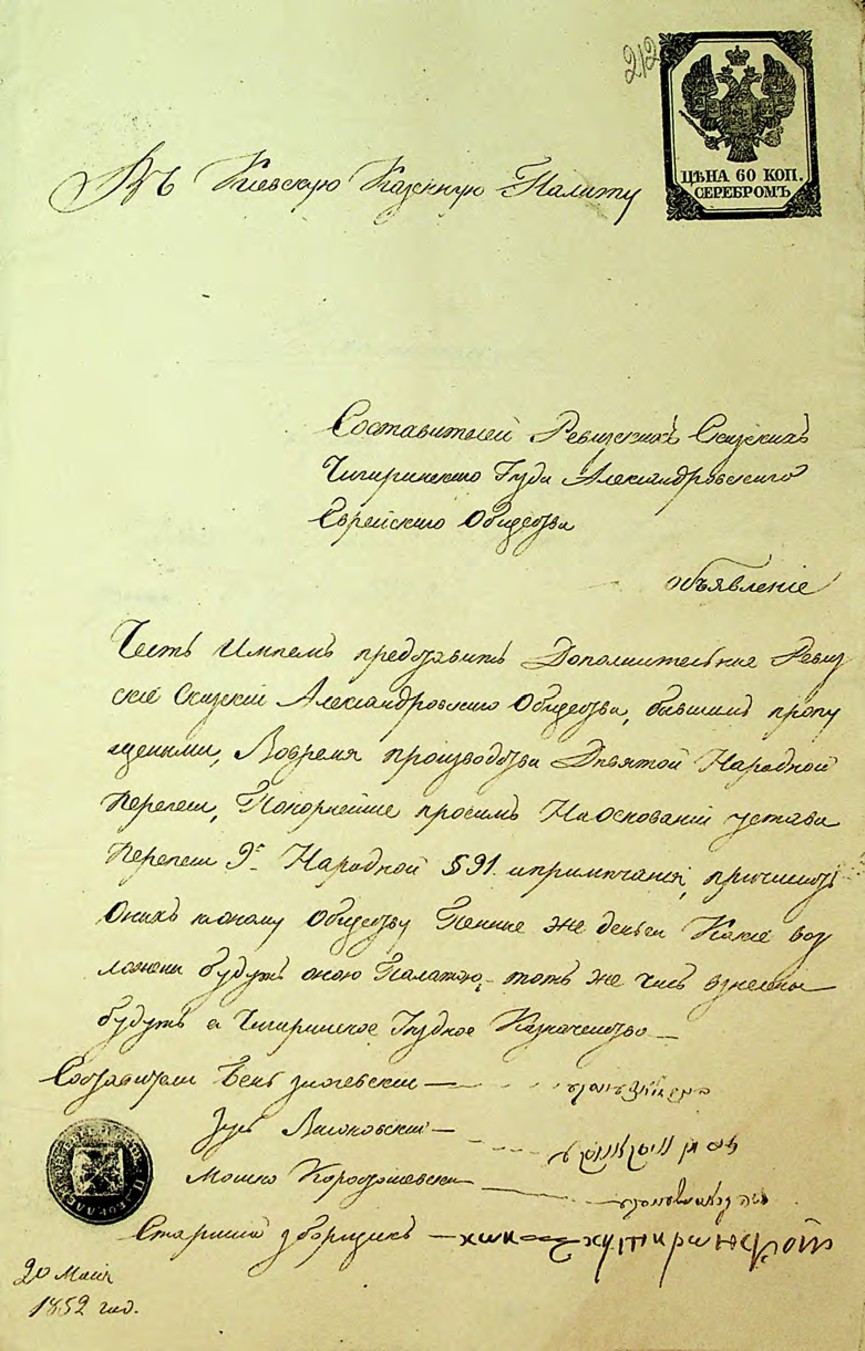 212
ЦѢНА 60 КОП.
СЕРЕБРОМЪ
Въ Кіевскую Казенную Палату
Составителей Ревизскихъ Сказскихъ
Чигиринского Уѣзда Александровского
Еврейского Общества
объявленіе
Честь Имѣемъ представить Дополнительные Ревиз
скіе Сказкій Александровского Общества, бывшимъ пропу
щеными, Вовремя производства Девятой Народной
Переписи, Покорнейше просимъ На Основаній устава
Переписи 9й Народной §91. ипримѣчанія, причислить
Онихъ коному Обществу Пенные же деньги Какіе воз
ложени будутъ оною Палатою, тотъ же часъ взнесены
будутъ в Чигиринское Уѣздное Казначейство
Составители Бень
Зусь Високовскій
Мошко
Старшій зборщикъ
20 Мая
1852 год.